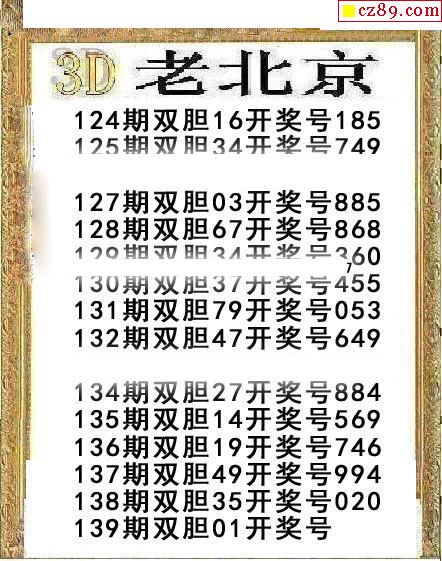 cz89.com
3D 老北京
124期双胆16开奖号185
125期双胆34开奖号749
127期双胆03开奖号885
128期双胆67开奖号868
129期双胆34开奖号360
7
130期双胆37开奖号455
131期双胆79开奖号053
132期双胆47开奖号649
134期双胆27开奖号884
135期双胆14开奖号569
136期双胆19开奖号746
137期双胆49开奖号994
138期双胆35开奖号020
139期双胆01开奖号